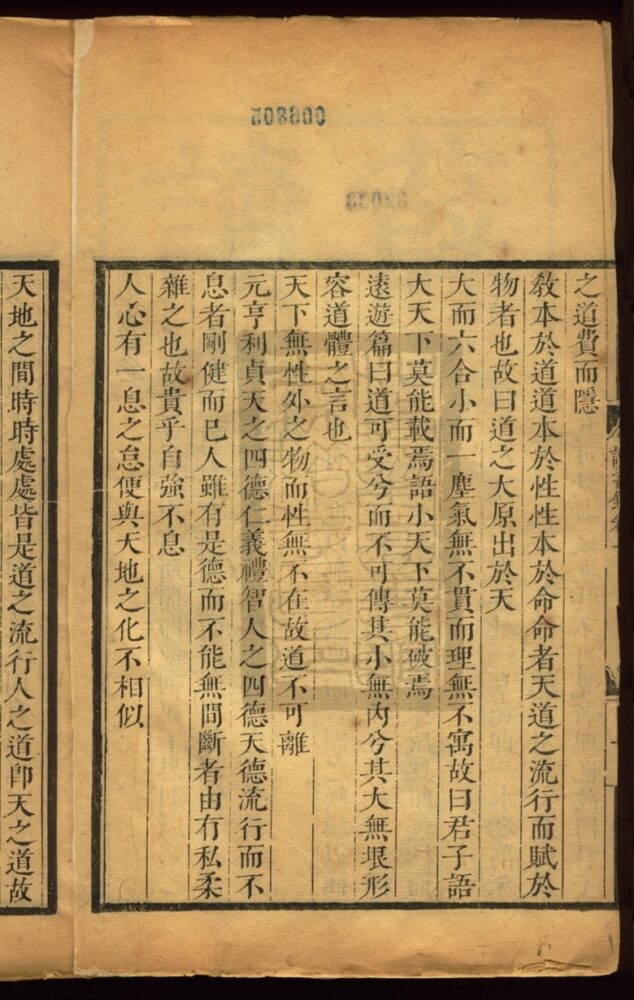 之道費而隱
敎本於道道本於性性本於命命者天道之流行而賦於
物者也故曰道之大原出於天
大而六合小而一塵氣無不貫而理無不寓故曰君子語
大天下莫能載焉語小天下莫能破焉
遠遊篇曰道可受兮而不可傳其小無內兮其大無垠形
容道體之言也
天下無性外之物而性無不在故道不可離
元亨利貞天之四德仁義禮智人之四德天德流行而不
息者剛健而已人雖有是德而不能無間斷者由有私柔
雜之也故貴乎自強不息
人心有一息之怠便與天地之化不相似
天地之間時時處處皆是道之流行人之道卽天之道故